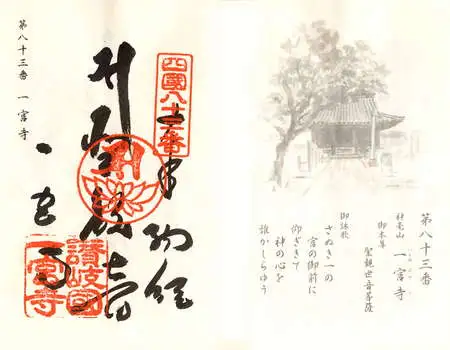 第八十三番
神毫山 一宮寺
御本尊 聖観世音菩薩
御詠歌
さぬき一の
宮の御前に
仰ぎきて
神の心を
誰かしらゆう
四國八十三番
奉納経
一宮寺
讃岐國
一宮寺
第八十三番 一宮寺